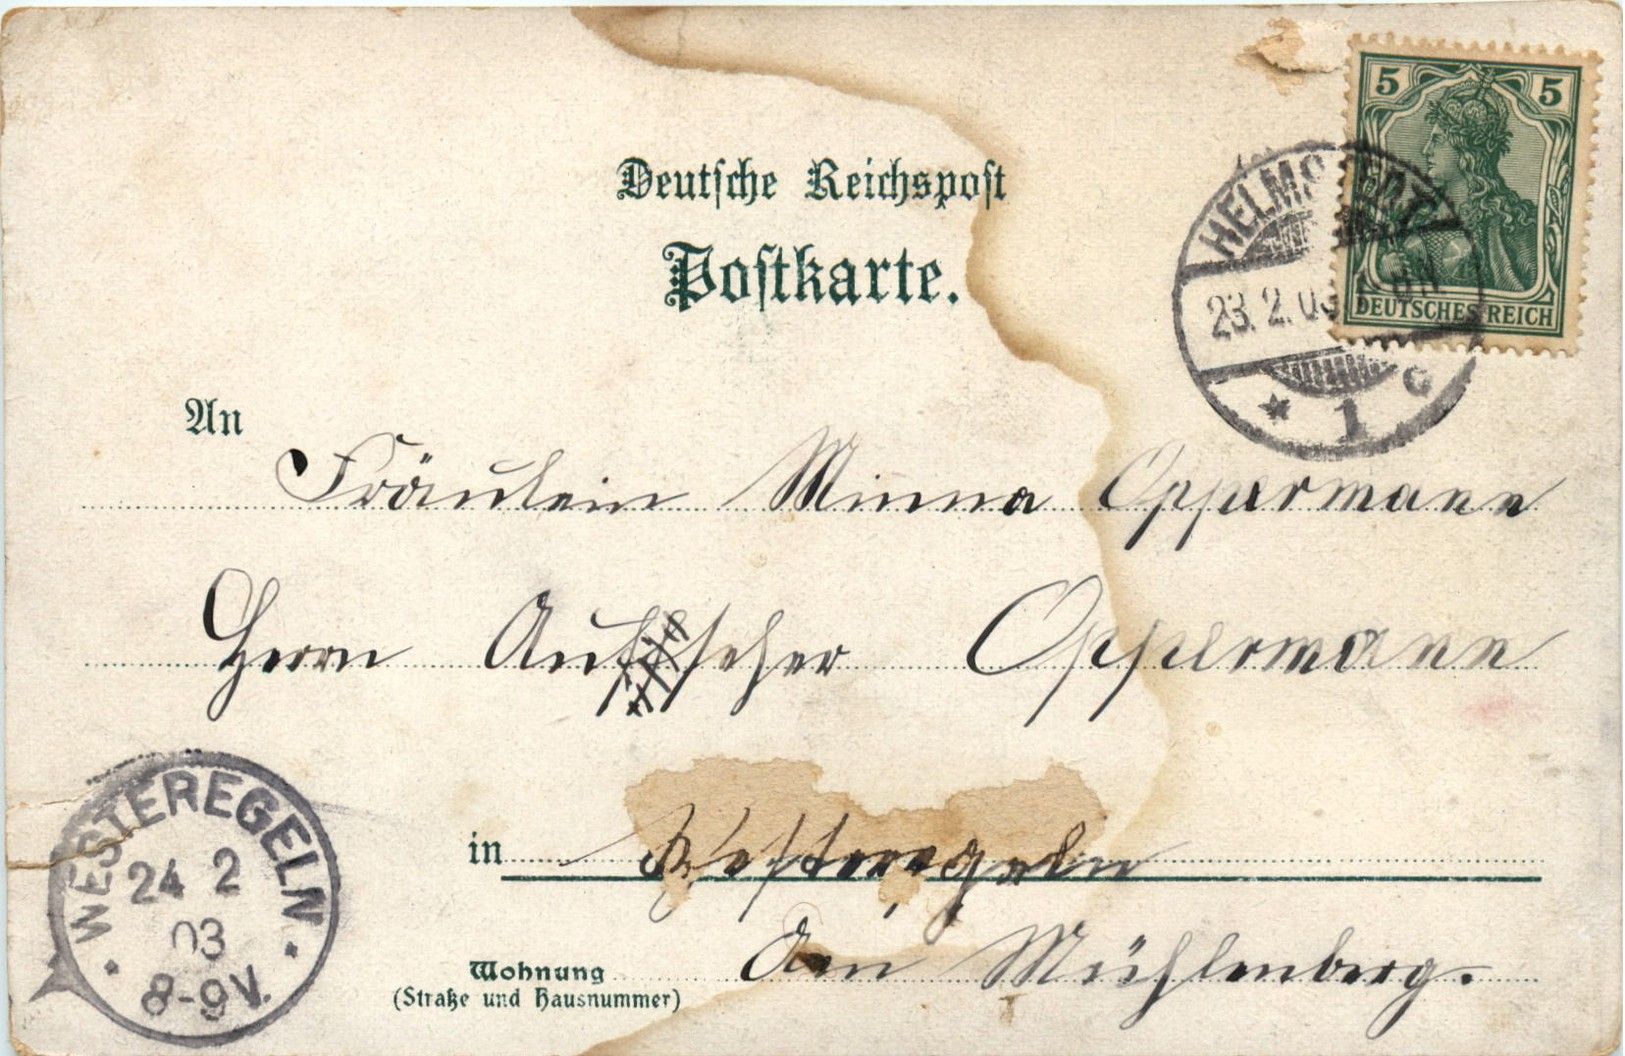 Deutsche Reichspost
Postkarte.
5 5
DEUTSCHES REICH
HELMSTEDT
23. 2. 03
* 1 c
An
Fräulein Minna Oppermann
Herrn Aufseher Oppermann
in Westeregeln
Wohnung
(Straße und Hausnummer)
Am Mühlenberg.
WESTEREGELN
24 2
03
8-9 V.